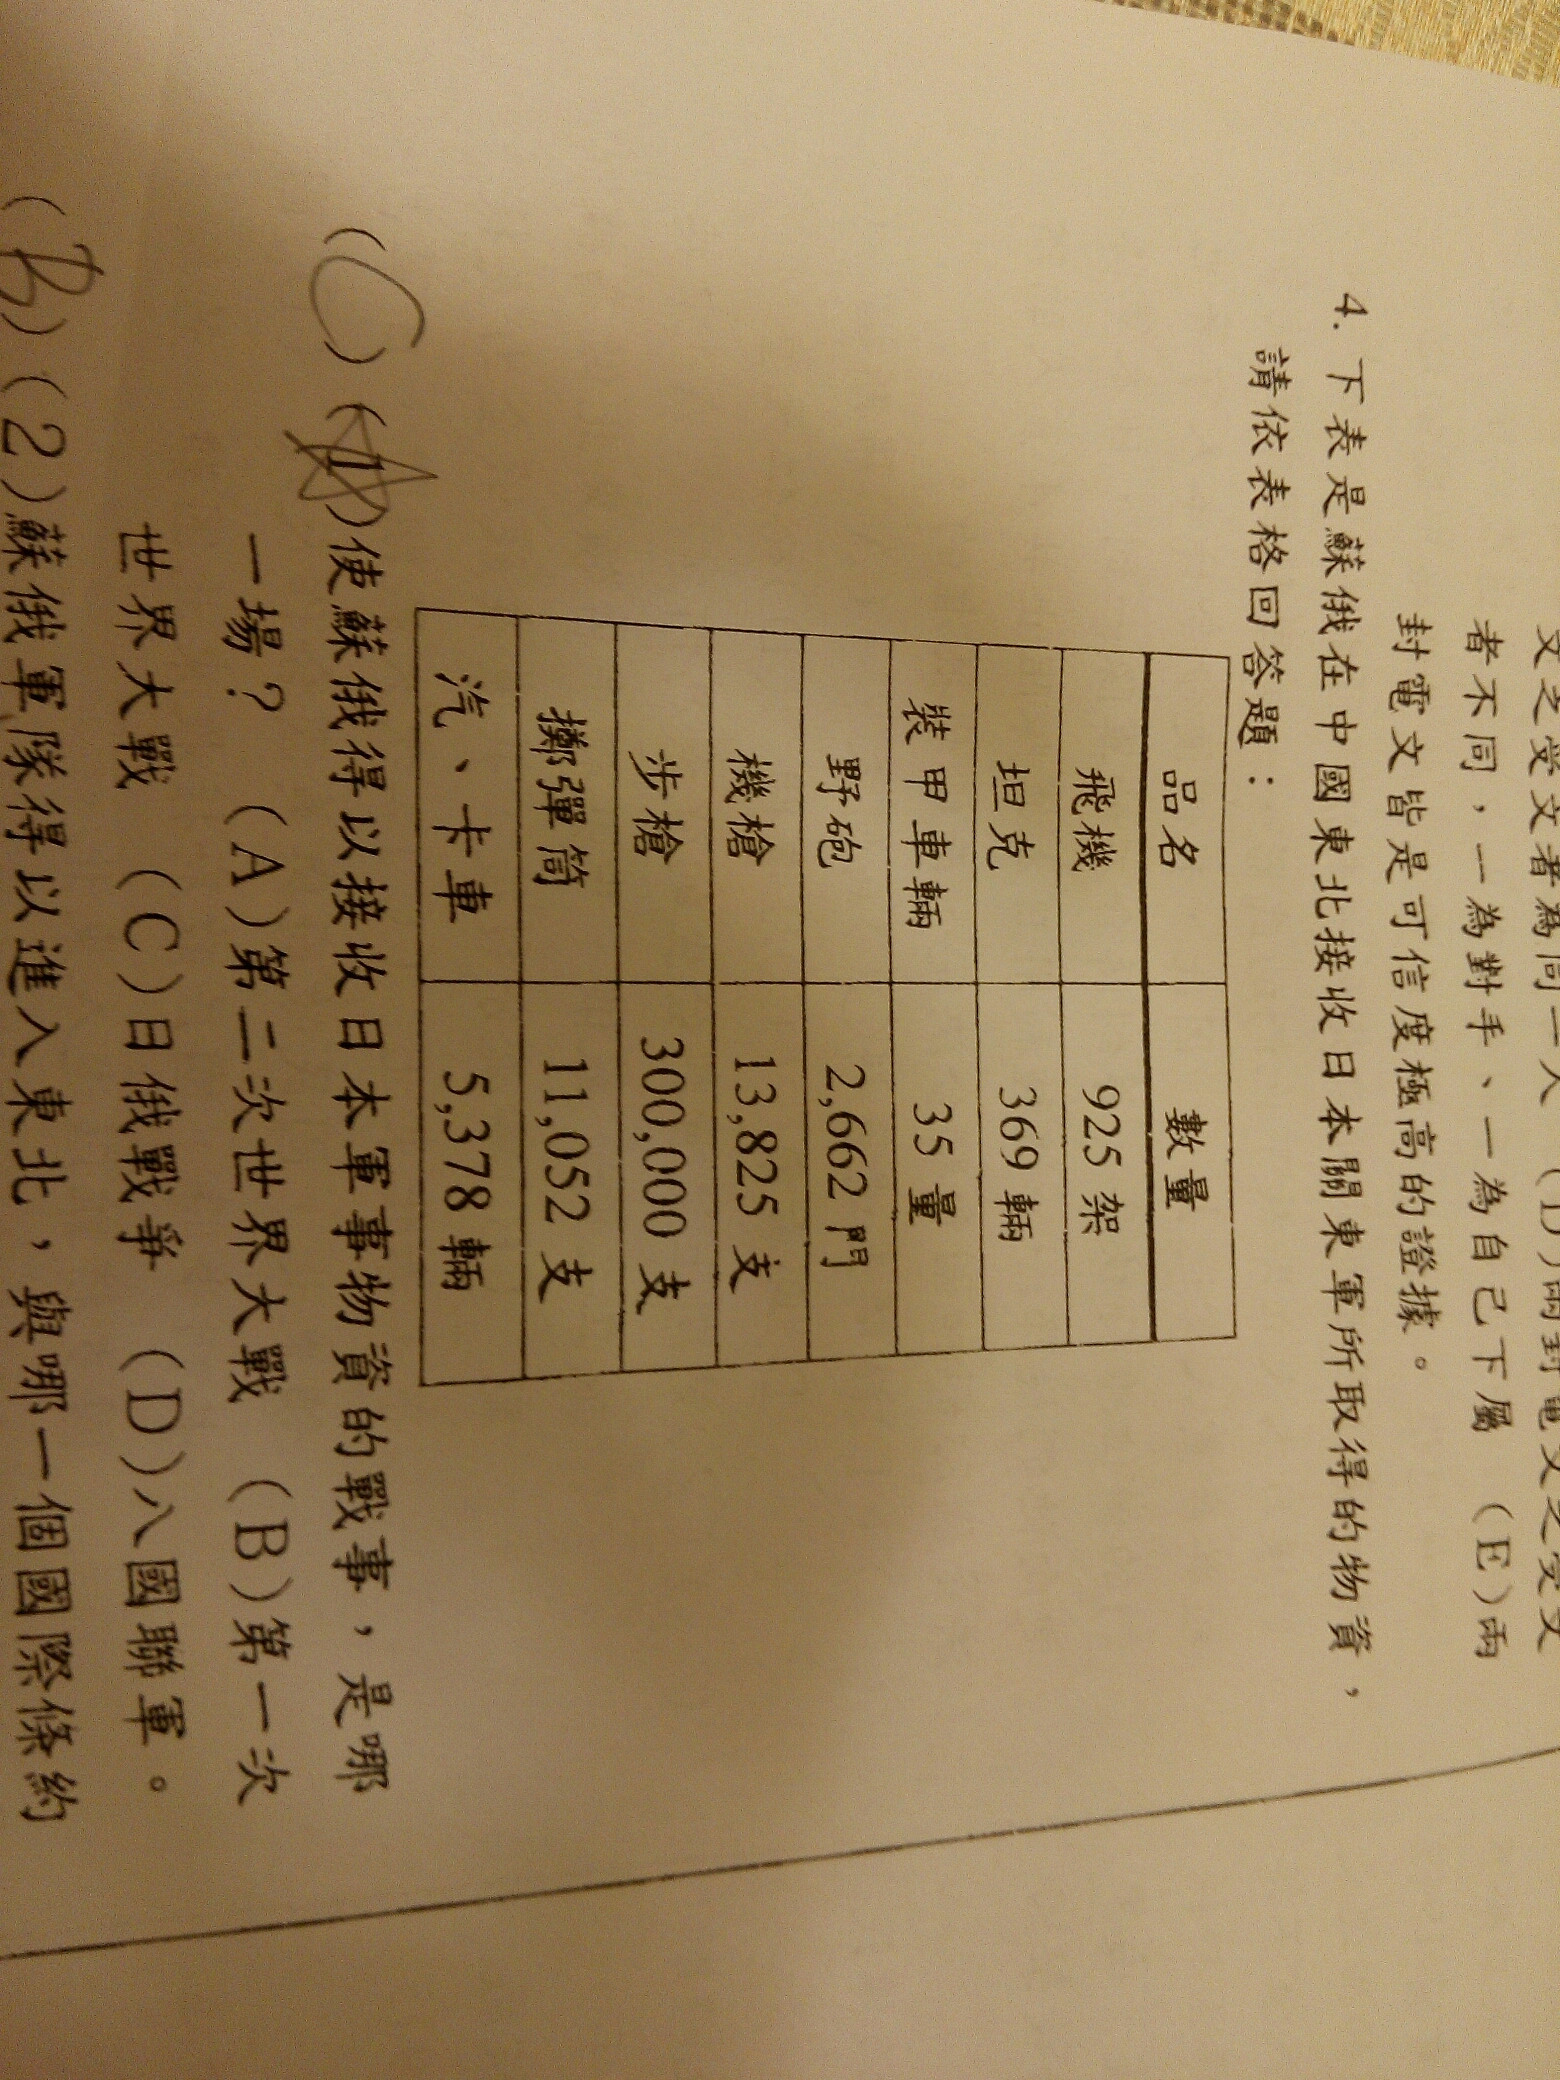 文之受文者為同一人 (D)兩封電文之受文
者不同，一為對手、一為自己下屬 (E)兩
封電文皆是可信度極高的證據。
4. 下表是蘇俄在中國東北接收日本關東軍所取得的物資，
請依表格回答題：
品名 數量
飛機 925 架
坦克 369 輛
裝甲車輛 35 量
野砲 2,662 門
機槍 13,825 支
步槍 300,000 支
擲彈筒 11,052 支
汽、卡車 5,378 輛
(C)(1)使蘇俄得以接收日本軍事物資的戰事，是哪
一場？ (A)第二次世界大戰 (B)第一次
世界大戰 (C)日俄戰爭 (D)八國聯軍。
(B)(2)蘇俄軍隊得以進入東北，與哪一個國際條約